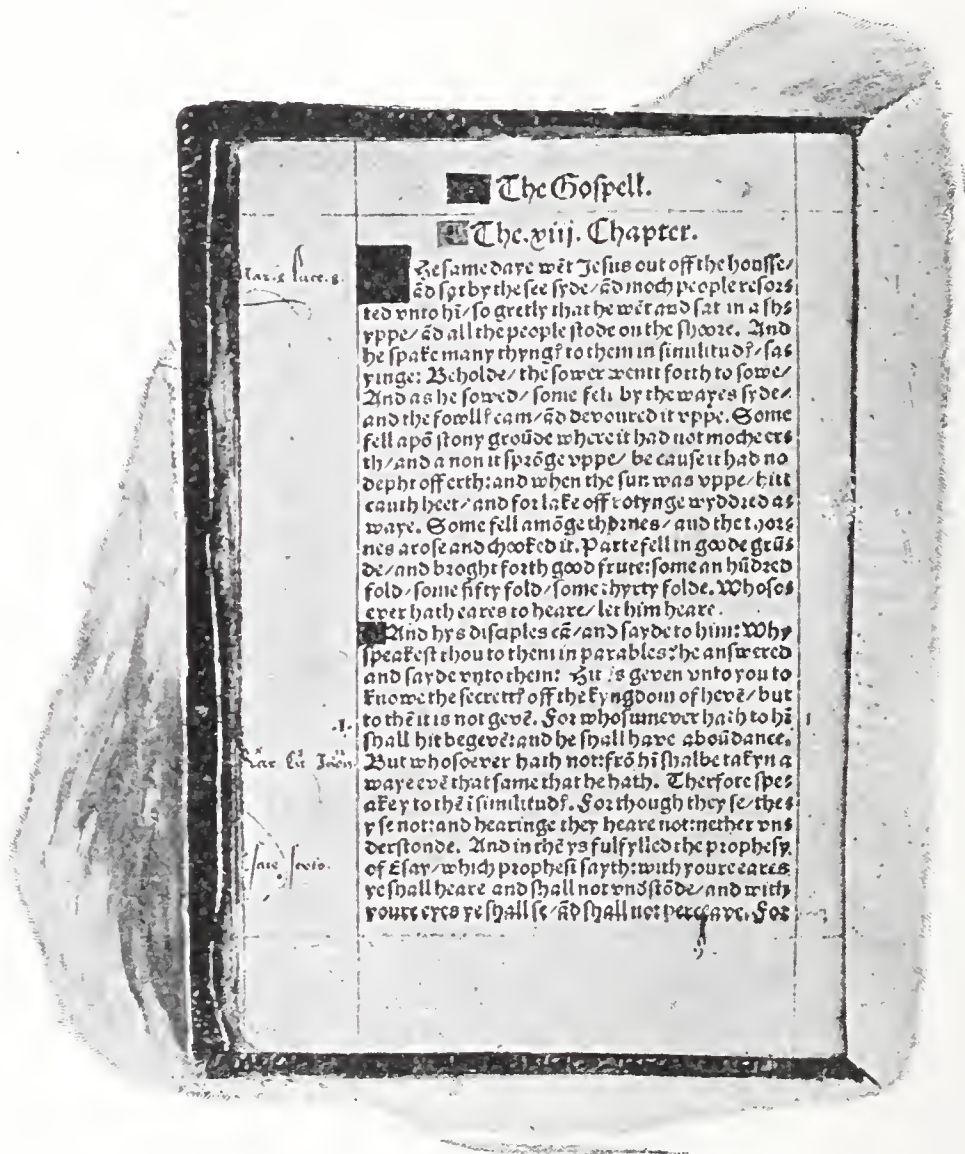 The Goſpell.
The.xiij. Chapter.
He ſame daye wēt Jeſus out off the houſſe/
ād ſyt by the ſee ſyde/ ād moch people reſor⸗
ted vnto hī/ ſo gretly that he wēt and ſat in a ſhy
yppe/ ād all the people ſtode on the ſhoore. And
he ſpake many thyngꝭ to them in ſimilitudꝭ/ ſa⸗
yinge: Beholde/ the ſower wentt forth to ſowe/
And as he ſowed/ ſome fell by the wayes ſyde/
and the fowllꝭ cam/ ād devoured it vppe. Some
fell apō ſtony groūde where it had not moche er⸗
th/ and a non it ſprōge vppe/ be cauſe it had no
depht off erth: and when the ſun was vppe/ hitt
cauth heet/ and for lake off rotynge wyddred a⸗
waye. Some fell amōge thornes/ and the thor⸗
nes aroſe and chooked it. Parte fell in goode grū⸗
de/ and broght forth good frute: ſome an hūdred
fold/ ſome fifty fold/ ſome thyrty folde. Whoſo⸗
ever hath eares to heare/ let him heare.
And hys diſciples cā/ and ſayde to him: Why
ſpeakeſt thou to them in parables? he anſwered
and ſayde vnto them: Hit is geven vnto you to
knowe the ſecrettꝭ off the kyngdom of hevē/ but
to thē it is not gevē. For whoſumever hath to hī
ſhall hit be gevē: and he ſhall have aboūdance.
But whoſoever hath not: frō hī ſhalbe takyn a
waye evē that ſame that he hath. Therfore ſpe⸗
ake y to thē ī ſimilitudꝭ. For though they ſe/ the⸗
y ſe not: and hearinge they heare not: nether vn⸗
derſtonde. And in thē ys fulfylled the prophesy
of Eſay/ which propheſi ſayth: with youre eares
ye ſhall heare and ſhall not vnd̄ſtōde/ and with
youre eyes ye ſhall ſe/ ād ſhall not perceave. For